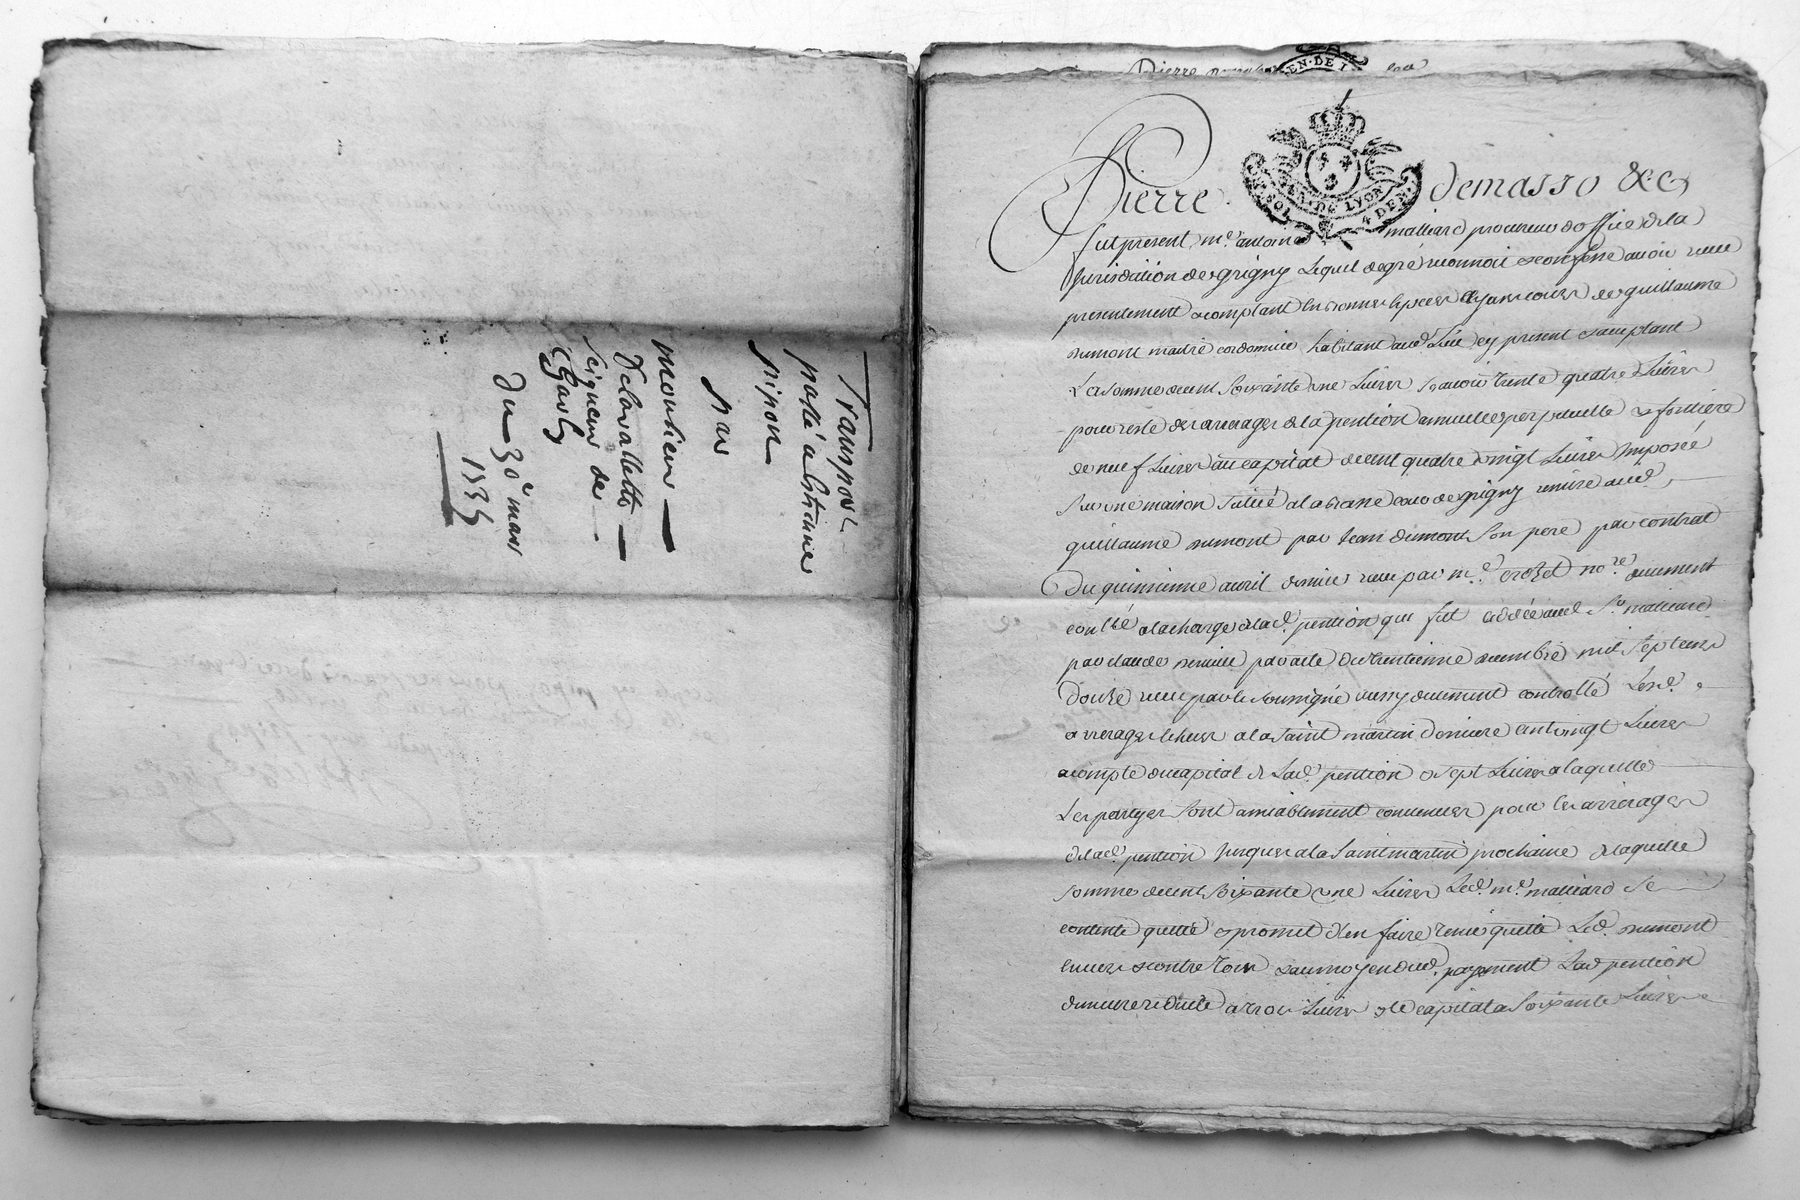 Transport
passé a Estienne
pipon
par
monsieur
Delavallette
seigneur de
du 30e mars
1735
Pierre demasso &c
GEN. DE LYON
4 DEN.
fut present me. antoine malliard procureur doffice de la
Jurisdiction de grigny lequel de gré reconnoit & confesse avoir receu
presentement & comptant en bonnes especes ayant cours de guillaume
dumont maitre cordonnier habitant aud. lieu cy present & acceptant
La somme de cent soixante une livres scavoir trente quatre livres
pour reste des arrerages de la pention annuelle perpetuelle & fonciere
de neuf livres au capital de cent quatre vingt livres imposée
sur une maison située a la grigny remise aud.
guillaume dumont par jean dumont son pere par contrat
Du quinzieme avril dernier receu par me. nore. duement
contlé a la charge de lad. pention qui fut cedée aud. sr. malliard
par claude par acte du trentieme decembre mil sept cens
douze receu par le soussigné aussy duement controllé Lesd.
arrerages echeus a la saint martin derniere cent vingt livres
a compte du capital de lad. pention & sept livres a laquelle
Les partyes sont amiablement convenues pour les arrerages
de lad. pention jusques a la saint martin prochaine de laquelle
somme de cent soixante une livres led. me. malliard se
contente quitte & promet d'en faire tenir quitte led. dumont
envers & contre tous & au moyen dud. payement lad. pention
demeure reduite a trois livres & le capital a soixante livres